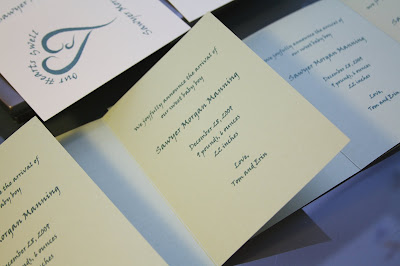 Sawyer Mor
Our Hearts Swell
We joyfully announce the arrival of
our sweet baby boy
Sawyer Morgan Manning
December 28, 2009
9 pounds, 6 ounces
22 inches
Love,
Tom and Erin
We joyfully announce the arrival of
our sweet baby boy
Sawyer Morgan Manning
December 28, 2009
9 pounds, 6 ounces
22 inches
Love,
Tom and Erin
the arrival of
baby boy
Manning
28, 2009
6 ounces